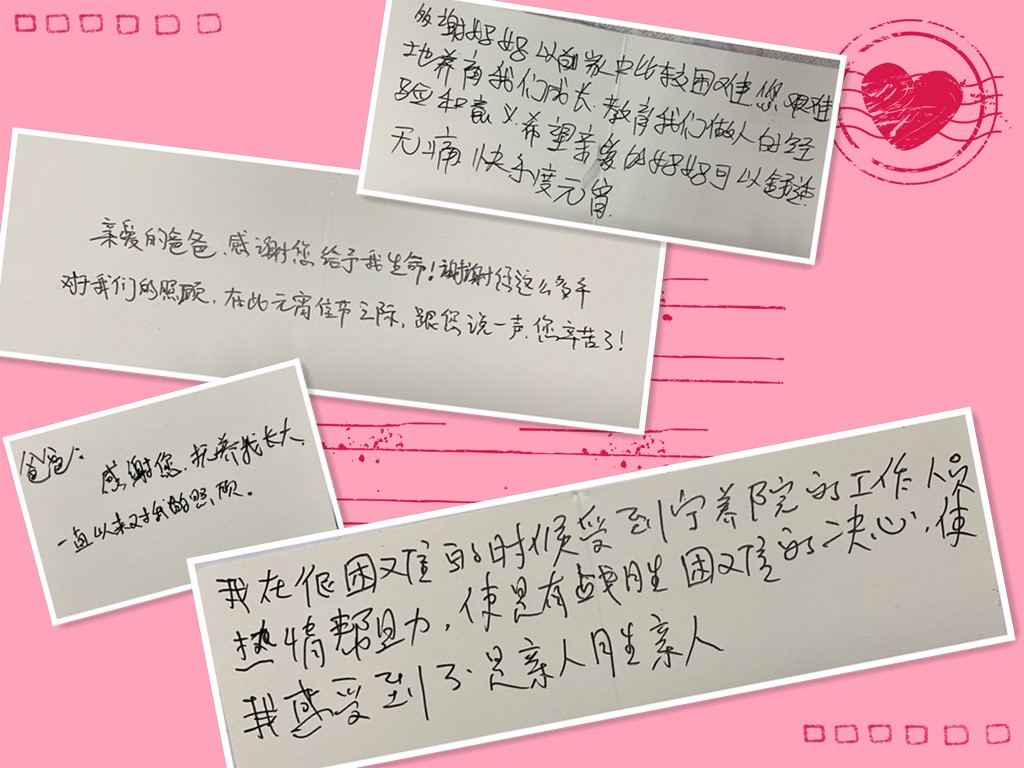 多谢妈妈以前家中比较困难,您艰难
地养育我们成长.教育我们做人的经
验和意义.希望亲爱的妈妈可以舒适
无痛快乐度元宵.
亲爱的爸爸、感谢您给予我生命!谢谢您这么多年
对于我们的照顾,在此元宵佳节之际,跟您说一声,您辛苦了!
爸爸:
感谢您,抚养我长大,
一直以来对我的照顾。
我在很困难的时候受到宁养院的工作人员
热情帮助,使思有战胜困难的决心,使
我感受到了不是亲人胜亲人